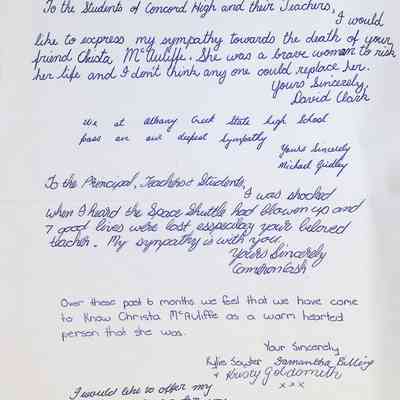 To the Students of Concord High and their Teachers,
I would
like to express my sympathy towards the death of your
friend Christa McAuliffe. She was a brave woman to risk
her life and I don't think any one could replace her.
Yours Sincerely,
David Clark
We at Albany Creek State high School
pass on our depest sympathy
Yours Sincerely
Michael Gidley
To the Principal, Teachers & Students,
I was shocked
when I heard the Space Shuttle had blown up and
7 good lives were lost especially your beloved
teacher. My sympathy is with you.
Yours Sincerely
Cameron Cash
Over these past 6 months we feel that we have come
to know Christa McAuliffe as a warm hearted
person that she was.
Your Sincerely
Kylie Samantha Billing
+ Kristy Goldsmith
x x x
I would like to offer my